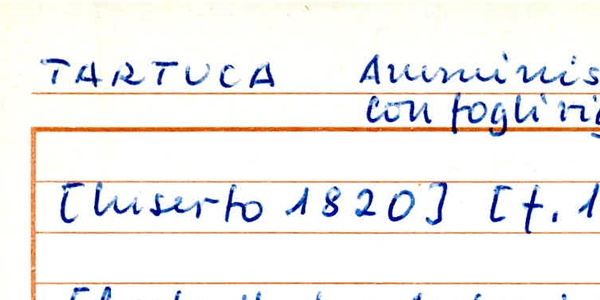 TARTUCA Amminis
con fogli rig
[Inserto 1820] [f. 1